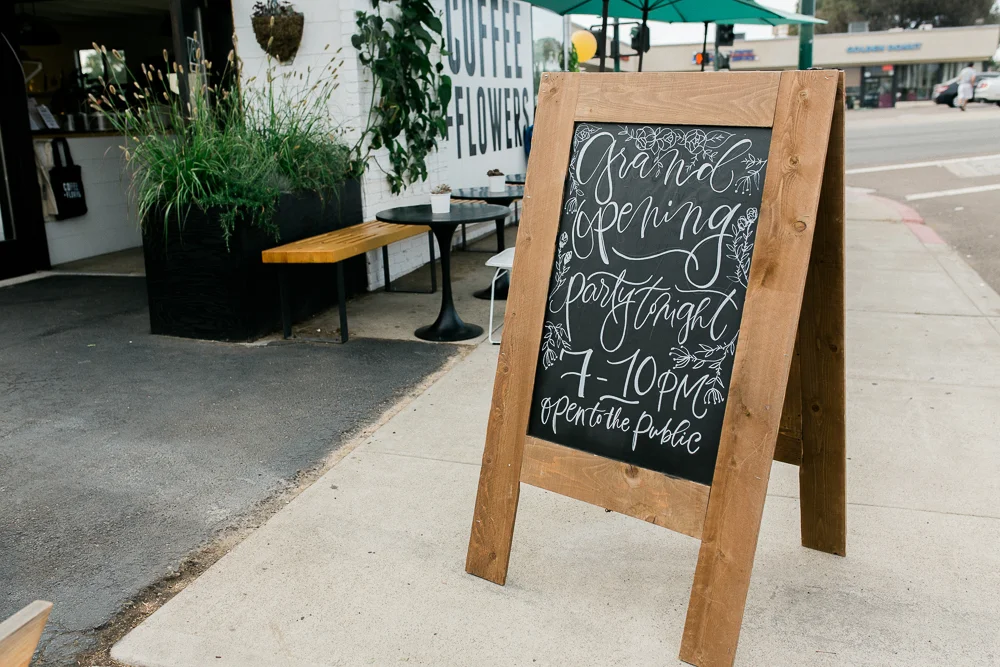 COFFEE
+FLOWERS
COFFEE
+FLOWERS
GOLDEN DONUT
Grand
opening
party tonight
7-10PM
open to the public